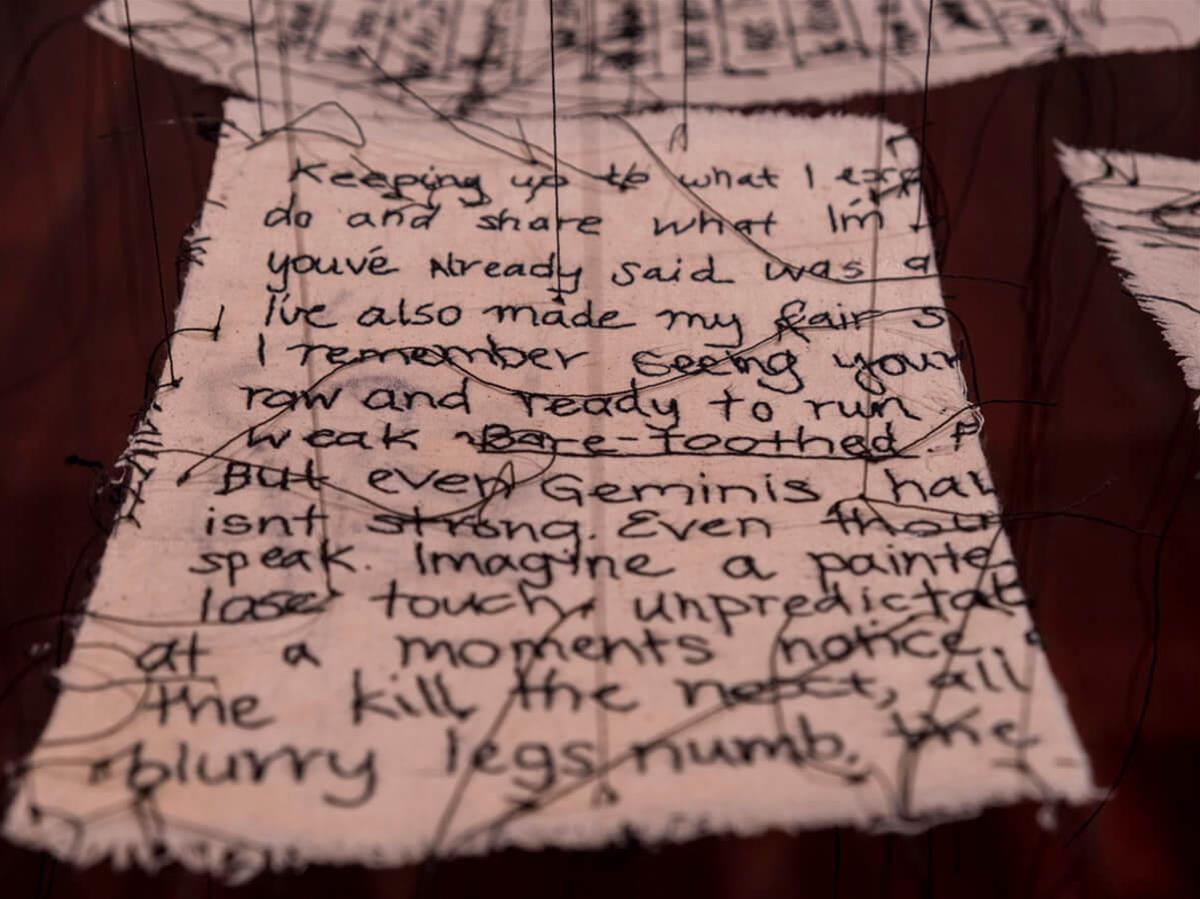 Keeping up to what I
do and share what I'm
you've Already said was a
I've also made my fair s
I remember seeing your
raw and ready to run
weak Bare-toothed
But even Geminis hav
isnt strong. Even thou
speak. Imagine a painte
lose touch, unpredictab
at a moments notice,
the kill the next, all
blurry legs numb. the